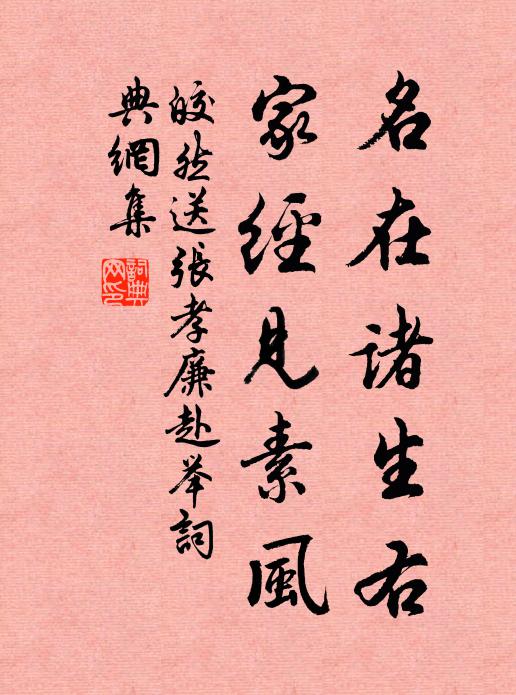 名在诸生右
家經見素風
皎然送張孝廉赴举詞
典網集
詞典网印